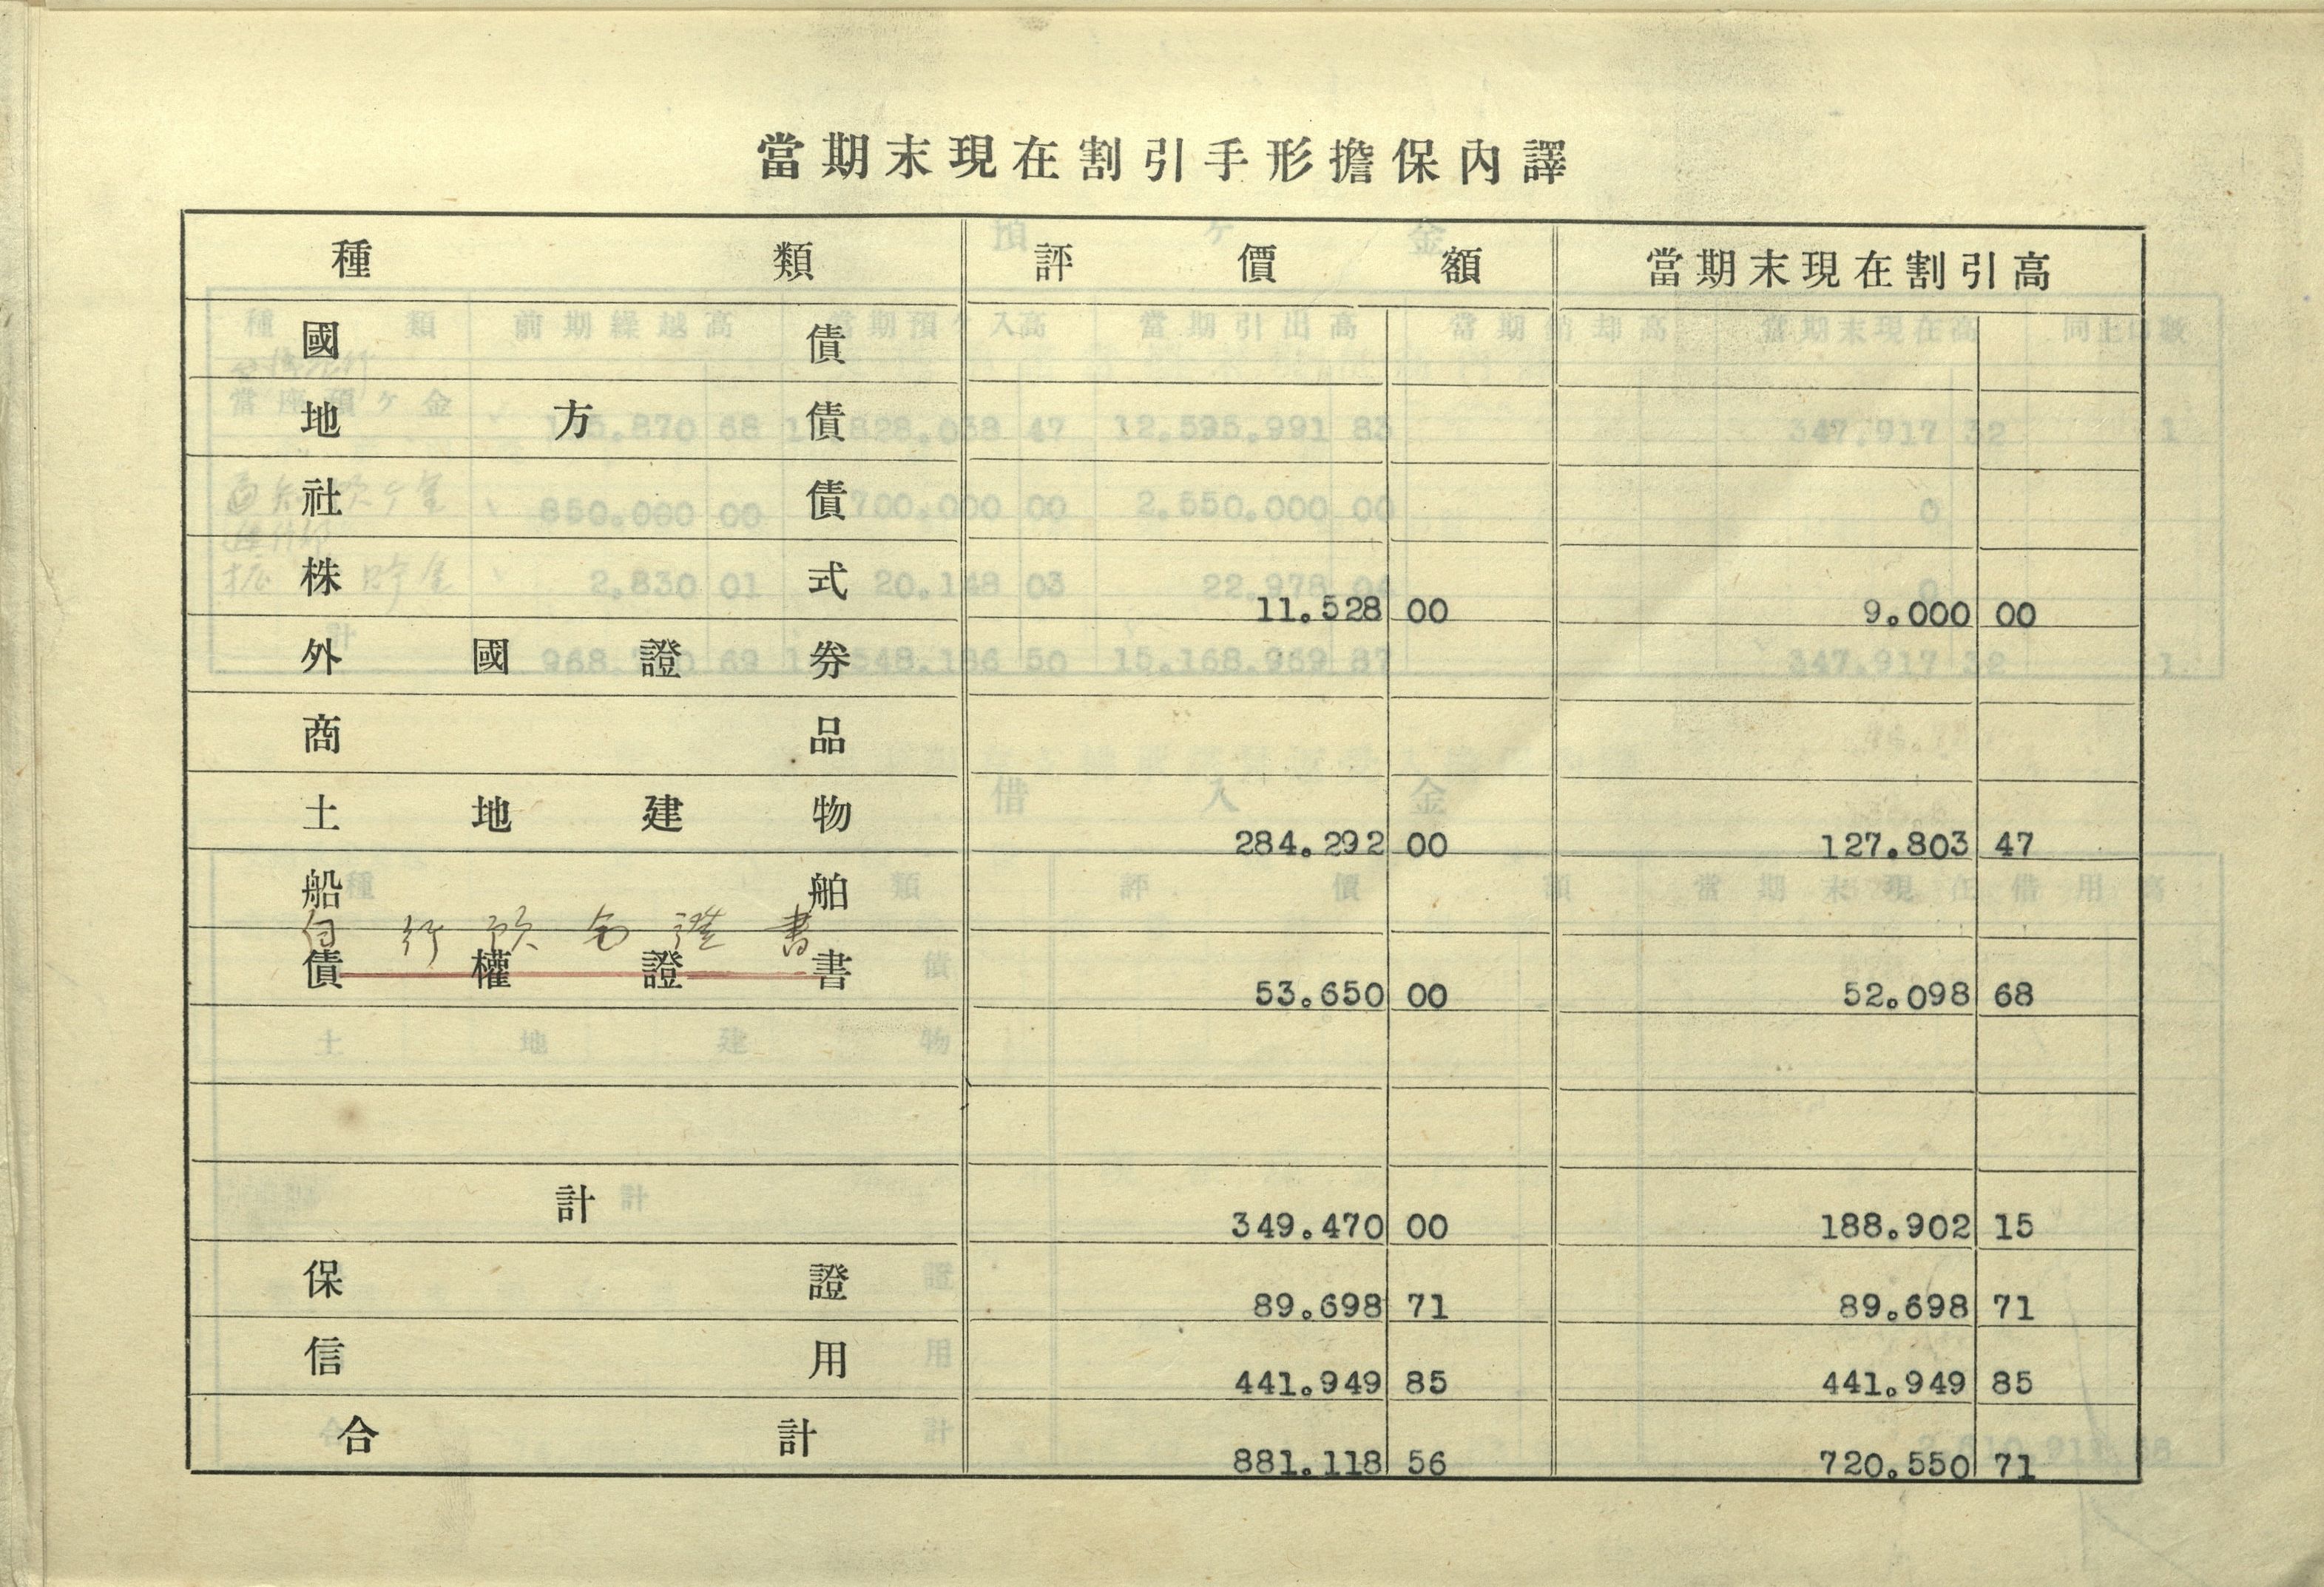 當期末現在割引手形擔保內譯
種類 評價額 當期末現在割引高
國債
地方債
社債
株式 11.528 00 9.000 00
外國證券
商品
土地建物 284.292 00 127.803 47
船舶
自行預金證書
債權證書 53.650 00 52.098 68
計 349.470 00 188.902 15
保證 89.698 71 89.698 71
信用 441.949 85 441.949 85
合計 881.118 56 720.550 71